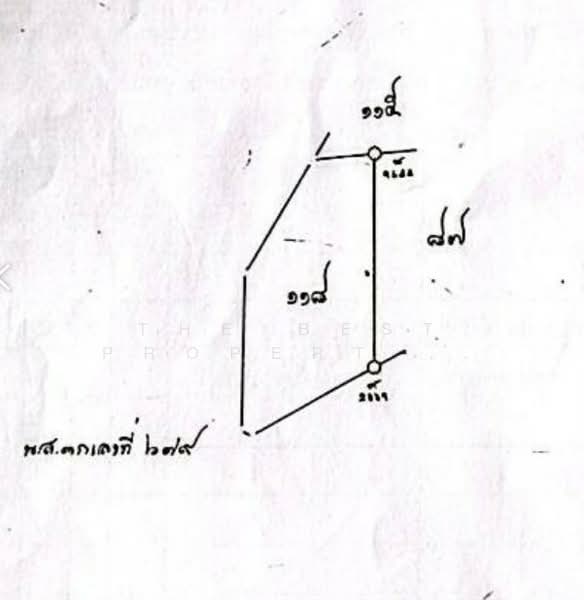 ๑๑๕
๘๗
๑๑๘
THE BEST
PROPERT
น.ส.๓ก เลขที่ ๖๗๙